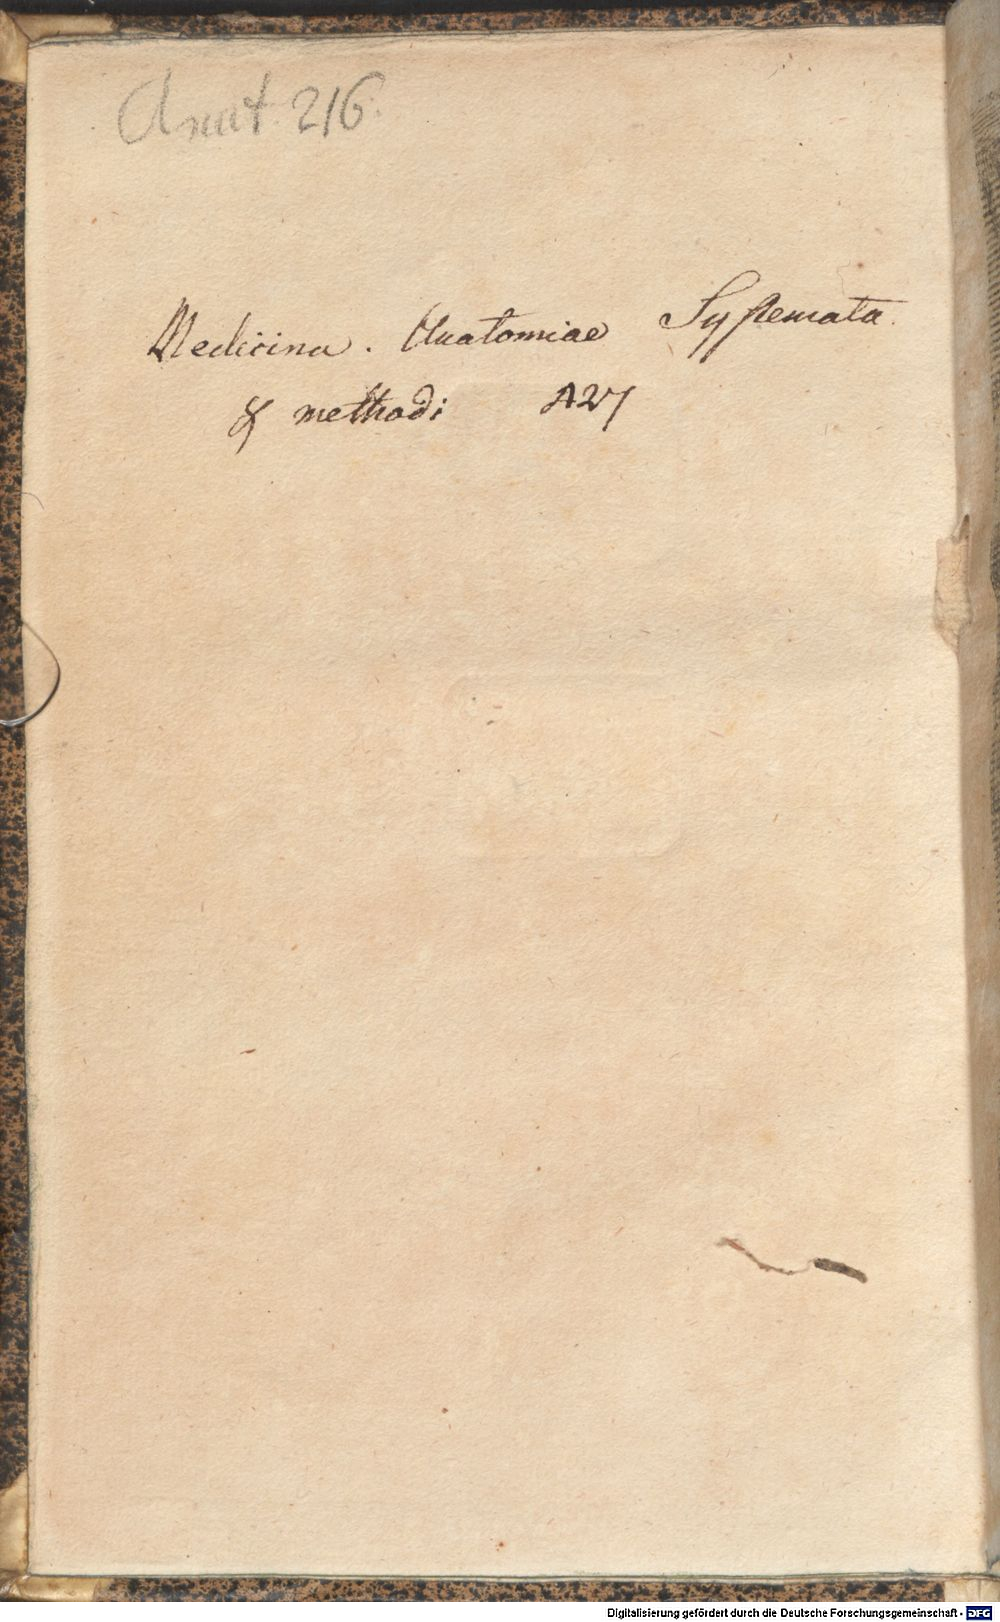 Anat. 216.
Medicina. Anatomiae Systemata.
& methodi A27
Digitalisierung gefördert durch die Deutsche Forschungsgemeinschaft - DFG